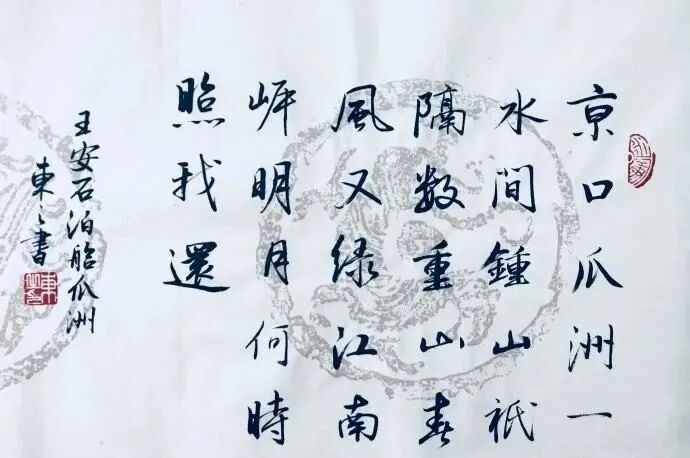 京口瓜洲一
水間鍾山祇
隔数重山春
風又绿江南
岸明月何時
照我還
王安石泊船瓜洲
東々書